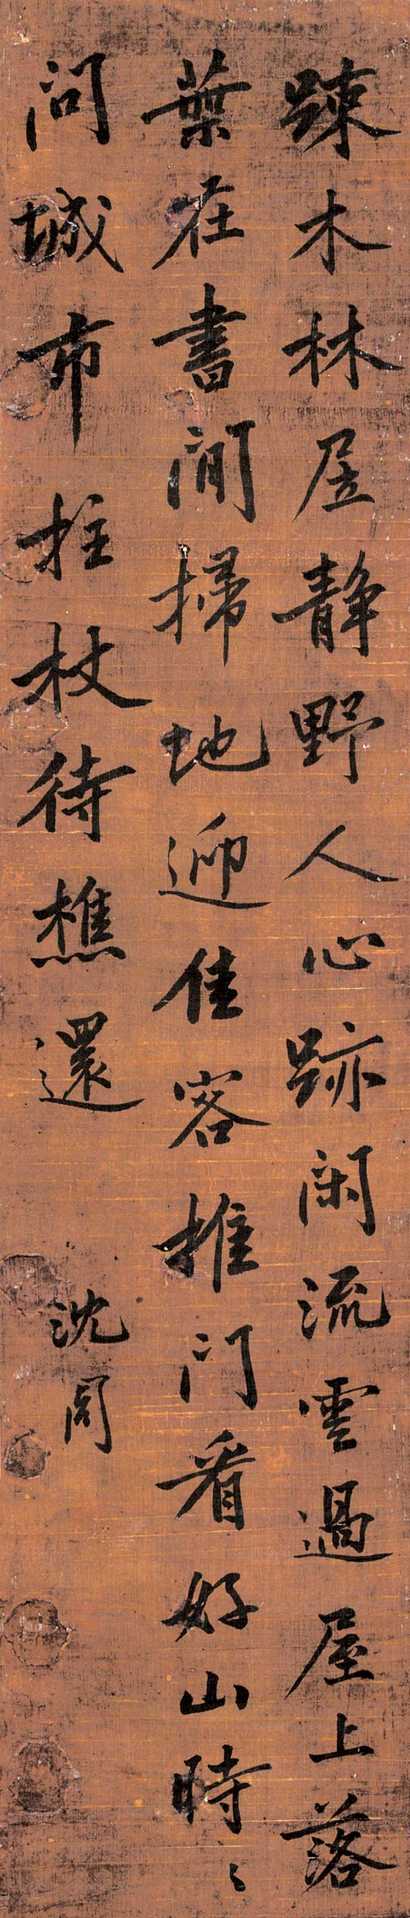 踈木林居静野人心跡闲流雲過屋上落
葉在書間掃地迎佳客推门看好山時〻
问城市拄杖待樵還
沈周